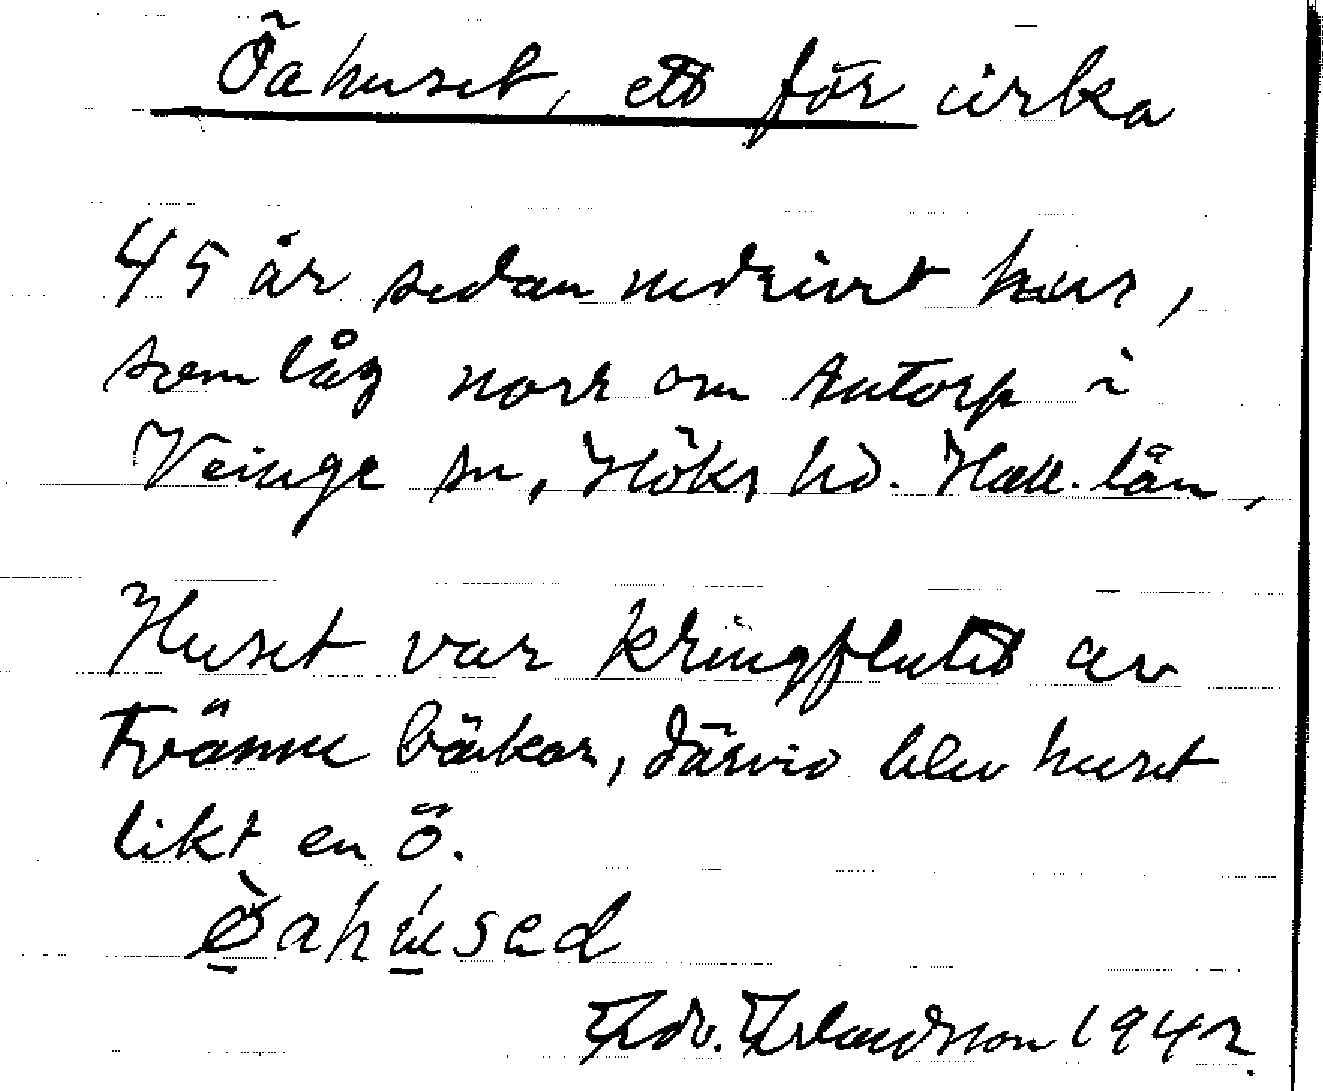 Öahuset, ett för cirka
45 år sedan nedrivet hus,
som låg norr om Autorp i
Veinge sn, Höks hd. Hall. län,
Huset var kringflutet av
tvänne bäckar, därvid blev huset
likt en ö.
Edv. Erlandsson 1942.